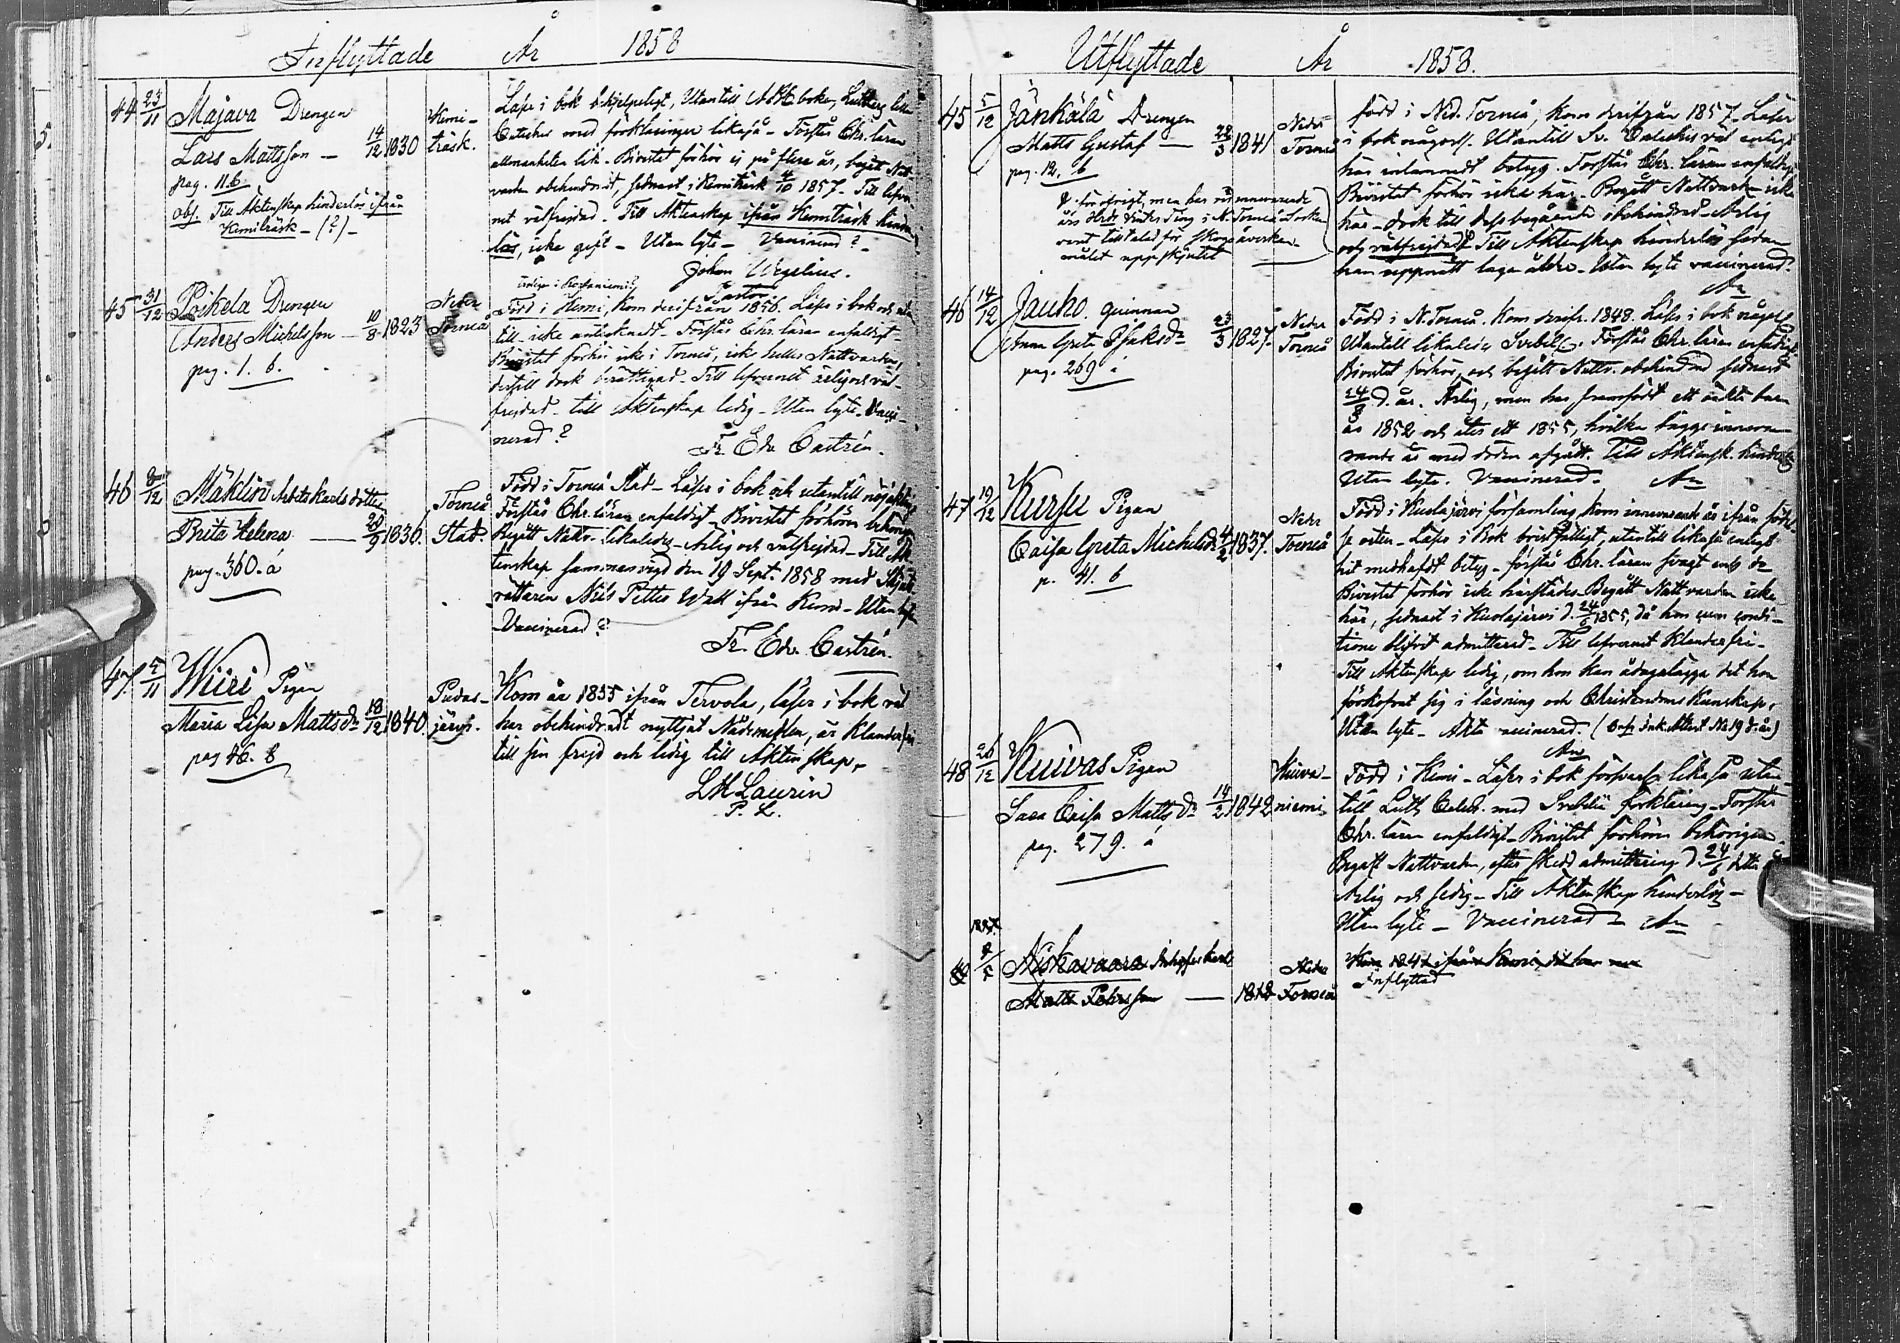 Inflyttade År 1858
44 23/11 Majava Drengen
Lars Mattsson — 14/12 1830
pag. 11. b.
Obs. Till Äktenskap hinderlös ifrån
Kemiträsk — (?) —
Kemi-
träsk.
Läser i bok behjelpeligt, Utantill ABC boken, Luthers lilla
Cateches med förklaringen likaså — Förstår Chr. läran
. Bivistat förhör ej på flere år, begått Natt-
varden obehindradt, sednast i Kemiträsk 4/10 1857. Till lefver-
net välfrejdad. Till Äktenskap ifrån Kemiträsk hinder-
lös, icke gift — Utan lyte — Vaccinerad? —
Johan Wegelius.
Pastor
45 31/12 Poikela Drengen
Anders Michelsson — 10/8 1823
pag. 1. b.
Neder
Torneå
Född i Kemi, kom derifrån 1856. Läser i bok och utan
till icke antecknadt. Förstår Chr. läran enfaldigt —
Bivistat förhör icke i Torneå, icke heller Nattvarden,
dertill dock berättigad — Till lefvernet ärlig och väl-
frejdad — till Äktenskap ledig — Utan lyte. Vacci-
nerad?
Fr. Edv. Castrén.
46 /12 Mäklin Arbetskarls dotter
Brita Helena — 29/9 1836.
pag. 360. a
Torneå
Stad.
Född i Torneå Stad — Läser i bok och utantill nöjaktigt
Förstår Chr. läran enfaldigt — Bivistat förhören behörigen
Begått Nattv. likaledes — Ärlig och välfrejdad — Till Äk-
tenskap sammanvigd den 19 Sept. 1858 med
rättaren Nils Petter Wall ifrån Kemi — Utan lyte
Vaccinerad?
Fr. Edv. Castrén.
47 5/11 Wiiri Pigan
Maria Lisa Mattsdr 18/12 1840.
pag 46. b
Pudas-
järvi.
Kom år 1855 ifrån Tervola, läser i bok väl
har obehindradt nyttjat Nådemedlen, är klanderfri
till sin frejd och ledig till Äktenskap,
LH Laurin
P. L.
Utflyttade År 1858.
45 5/12 Jänkälä Drengen
Matts Gustaf — 22/3 1841
pag. 12. b
Neder
Torneå
för öfrigt, men har vid innevarande
års Höste Vinter Ting i N. Torneå Socken
varit tilltalad för Skogsåverkan
målet uppskjutet
född i Ned. Torneå, kom derifrån 1857. Läser
i bok någorl. Utantill Sv. Cateches väl enligt
här inlemnadt betyg. Förstår Chr. läran enfaldigt
Bivistat förhör icke här. Begått Nattvarden icke
här — dock till dess begående obehindrad. Ärlig
och välfrejdad. Till Äktenskap hinderlös sedan
han uppnått laga ålder. Utan lyte vaccinerad.
46 14/12 Jauho. qvinnan
Anna Greta Isaksdr 23/3 1827.
pag. 269 a
Neder
Torneå
Född i N. Torneå. Kom derifr. 1848. Läser i bok någorl.
Utantill likaledes Svebelii. Förstår Chr. läran enfaldigt
Bivistat förhör, och begått Nattv. obehindrad sednast
24/8 d. år. Ärlig, men har framfödt ett oäkta barn
år 1852 och åter ett 1855, hvilka bägge inneva-
rande år med döden afgått. Till Äktensk. hinderlös
Utan lyte. Vaccinerad.
47 19/12 Kursu Pigan
Caisa Greta Michelsdr 4/2 1837.
p. 41. b
Neder
Torneå
Född i Kuolajärvi församling kom innevarande år ifrån födel-
se orten — Läser i Bok bristfälligt, utantill likaså enligt
hit medhafdt betyg — förstår Chr. läran svagt
Bivistat förhör icke härstädes. Begått Nattvarden icke
här, sednast i Kuolajärvi d. 24/6 1855, då hon cum condi-
tione blifvit admitterad. Till lefvernet klanderfri —
Till Äktenskap ledig, om hon kan ådagalägga det hon
förkofrat sig i läsning och Christendoms kunskap,
Utan lyte — Äkta vaccinerad.
48 26/12 Kuivas Pigan
Sara Caisa Mattsdr 14/2 1842
pag. 279. a
Kuiva-
niemi
Född i Kemi — Läser i bok försvarl. likaså utan-
till Luth. Catech. med Svebelii förklaring — Förstår
Chr. läran enfaldigt — Bivistat förhören behörigen.
Begått Nattvarden, efter skedd admittering d. 24/6 detta år
Ärlig och sedig — Till Äktenskap hinderlös —
Utan lyte — Vaccinerad —
Niskavaara Inhyseskarl
Matts Pehrsson — 1818
Neder
Torneå
Kom 1847 ifrån Kemi, dit han
Inflyttad